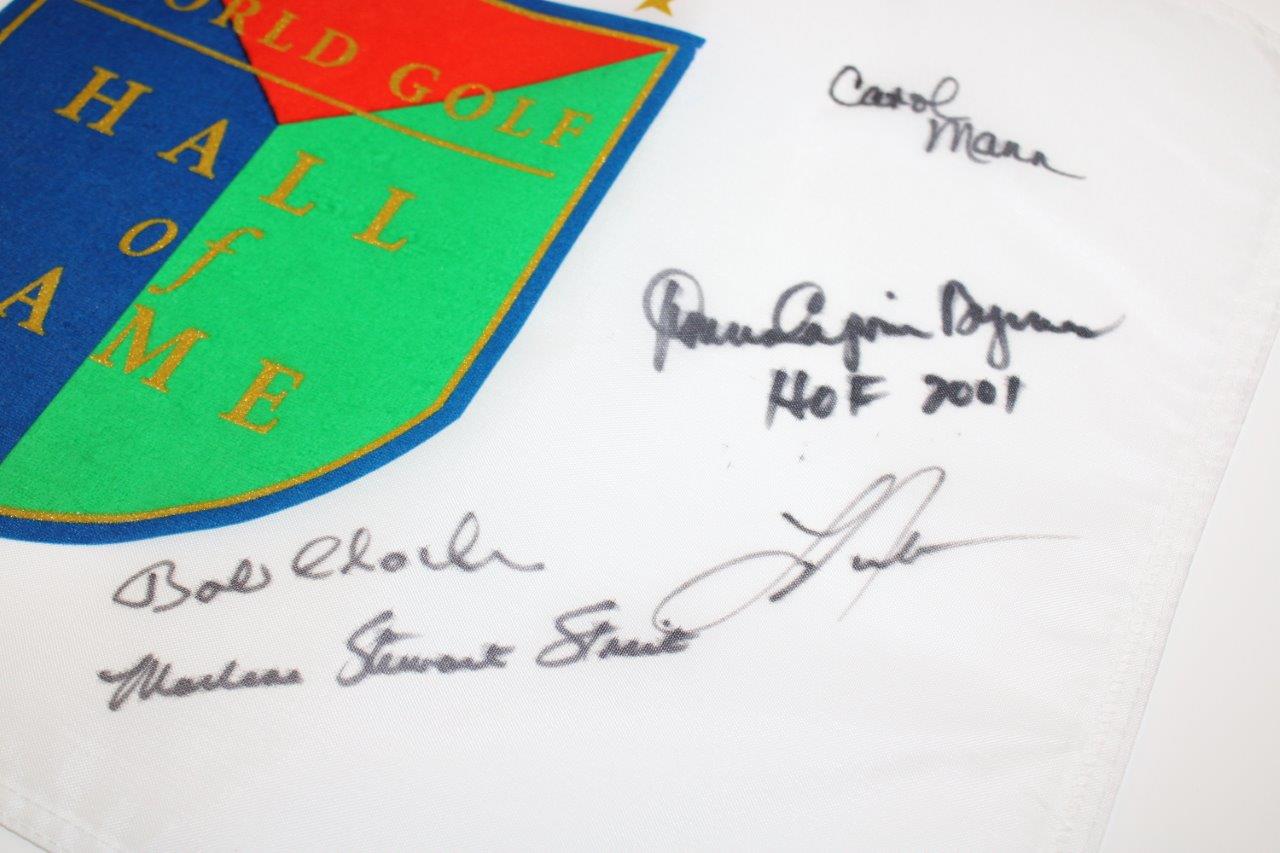 WORLD GOLF
HALL
of
AME
Carol
Mann
Donna Caponi Byrnes
HOF 2001
Bob Charles
Marlene Stewart Streit